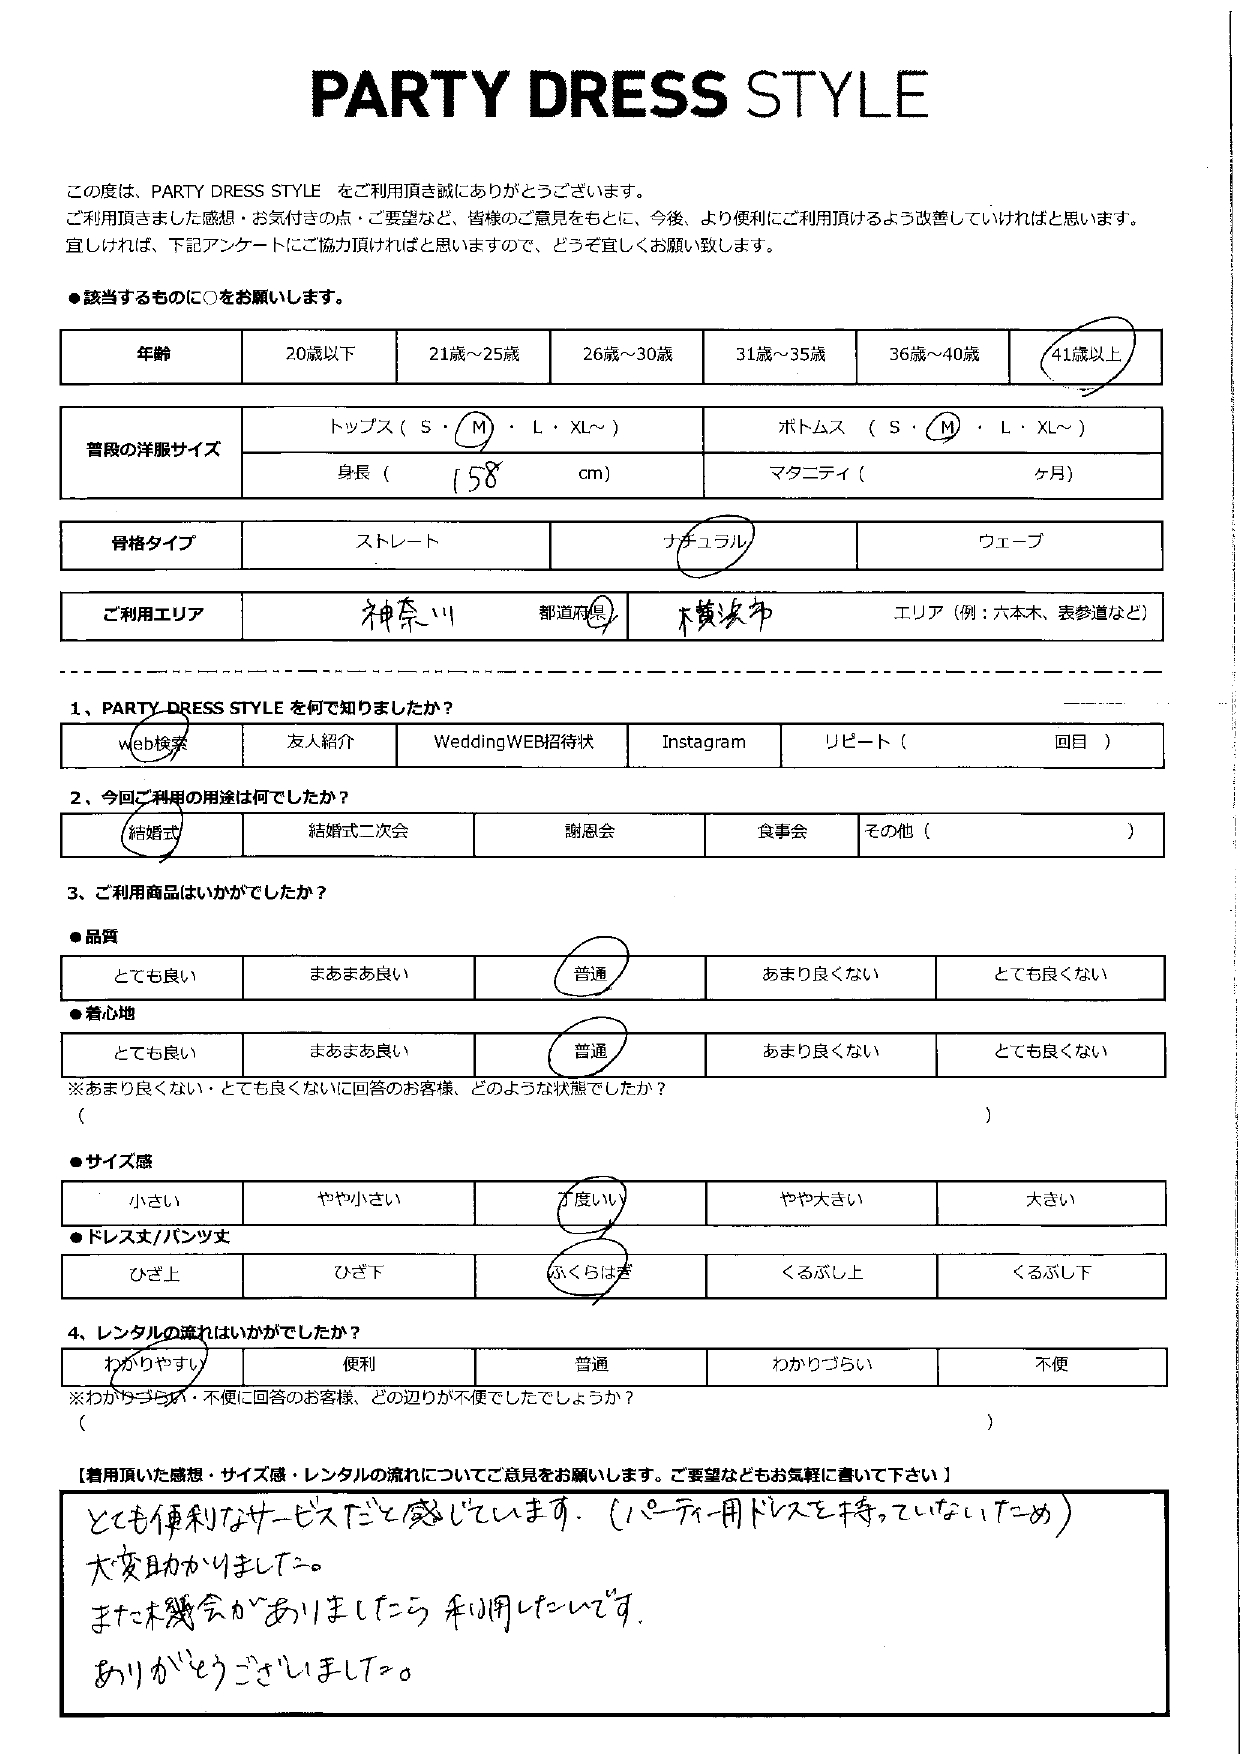 PARTY DRESS STYLE
この度は、PARTY DRESS STYLE をご利用頂き誠にありがとうございます。
ご利用頂きました感想・お気付きの点・ご要望など、皆様のご意見をもとに、今後、より便利にご利用頂けるよう改善していければと思います。
宜しければ、下記アンケートにご協力頂ければと思いますので、どうぞ宜しくお願い致します。
●該当するものに○をお願いします。
年齢 20歳以下 21歳～25歳 26歳～30歳 31歳～35歳 36歳～40歳 41歳以上
普段の洋服サイズ トップス ( S ・ M ・ L ・ XL～ ) ボトムス ( S ・ M ・ L ・ XL～ )
身長 ( 158 cm) マタニティ ( ヶ月)
骨格タイプ ストレート ナチュラル ウェーブ
ご利用エリア 神奈川 都道府県 横浜市 エリア（例：六本木、表参道など）
1、PARTY DRESS STYLE を何で知りましたか？
web検索 友人紹介 WeddingWEB招待状 Instagram リピート ( 回目 )
2、今回ご利用の用途は何でしたか？
結婚式 結婚式二次会 謝恩会 食事会 その他 ( )
3、ご利用商品はいかがでしたか？
●品質
とても良い まあまあ良い 普通 あまり良くない とても良くない
●着心地
とても良い まあまあ良い 普通 あまり良くない とても良くない
※あまり良くない・とても良くないに回答のお客様、どのような状態でしたか？
( )
●サイズ感
小さい やや小さい 丁度いい やや大きい 大きい
●ドレス丈/パンツ丈
ひざ上 ひざ下 ふくらはぎ くるぶし上 くるぶし下
4、レンタルの流れはいかがでしたか？
わかりやすい 便利 普通 わかりづらい 不便
※わかりづらい・不便に回答のお客様、どの辺りが不便でしたでしょうか？
( )
【着用頂いた感想・サイズ感・レンタルの流れについてご意見をお願いします。ご要望などもお気軽に書いて下さい 】
とても便利なサービスだと感じています.（パーティー用ドレスを持っていないため）
大変助かりました。
また機会がありましたら利用したいです.
ありがとうございました。